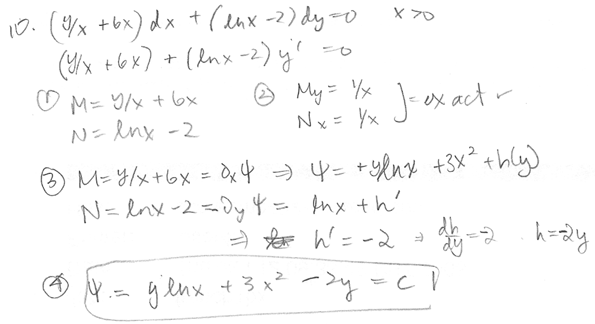 10. (y/x + 6x) dx + (ln x - 2) dy = 0 x > 0
(y/x + 6x) + (ln x - 2) y' = 0
① M = y/x + 6x ② My = 1/x ] = exact ✓
N = ln x - 2 Nx = 1/x
③ M = y/x + 6x = ∂xΨ ⇒ Ψ = + y ln x + 3x² + h(y)
N = ln x - 2 = ∂yΨ = ln x + h'
⇒ h' = -2 ⇒ dh/dy = -2 . h = -2y
④ Ψ = y ln x + 3x² - 2y = c